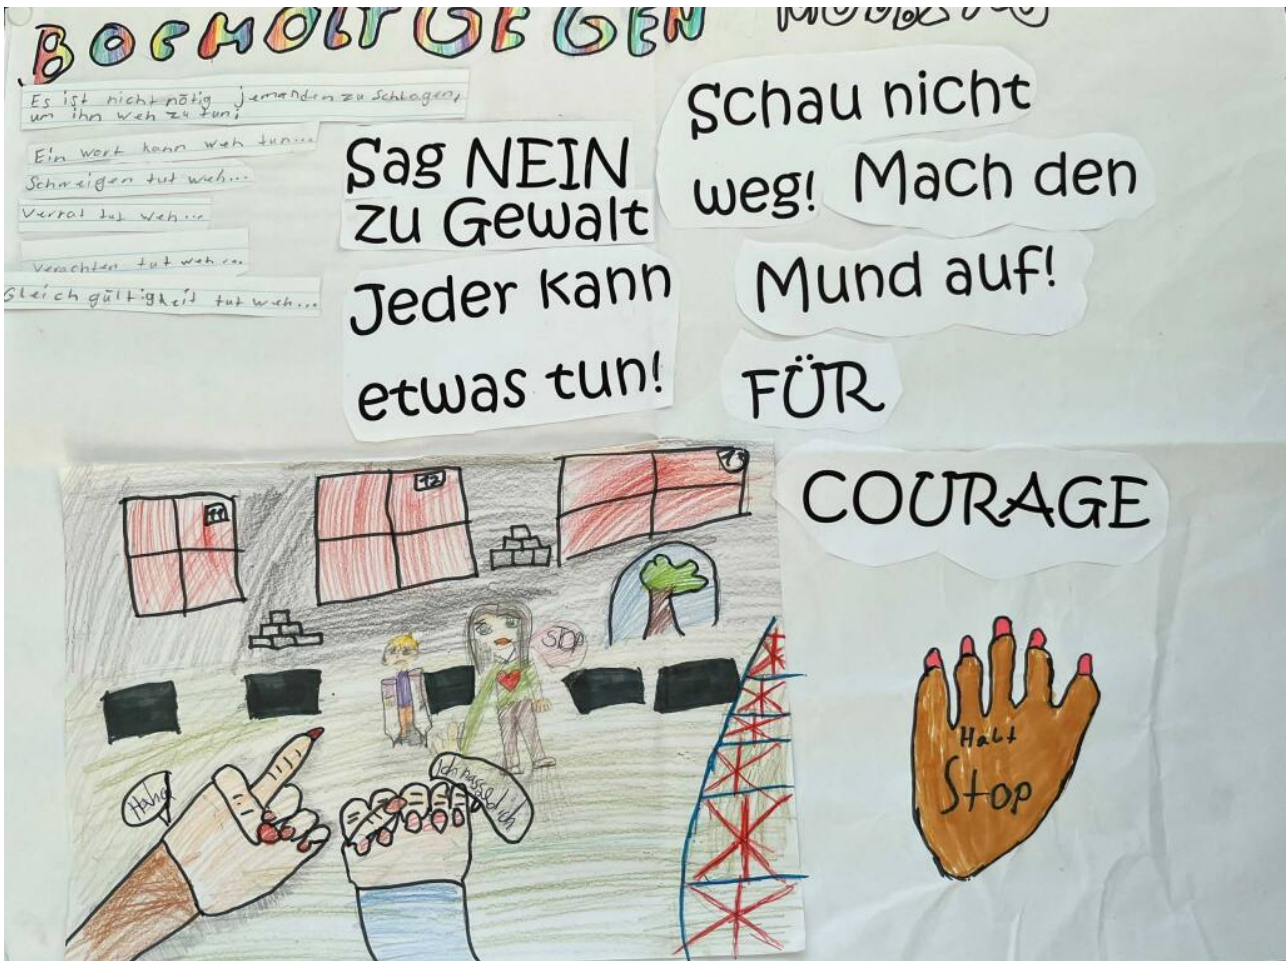 BOCHOLT GEGEN MOBBING
Es ist nicht nötig jemanden zu schlagen,
um ihn weh zu tun.
Ein wort kann weh tun...
Schweigen tut weh...
Verrat tut weh...
Verachten tut weh...
Gleichgültigkeit tut weh...
Sag NEIN
zu Gewalt
Jeder kann
etwas tun!
Schau nicht
weg! Mach den
Mund auf!
FÜR
COURAGE
11
12
13
STOP
Haha
Ich hasse dich
Halt
Stop